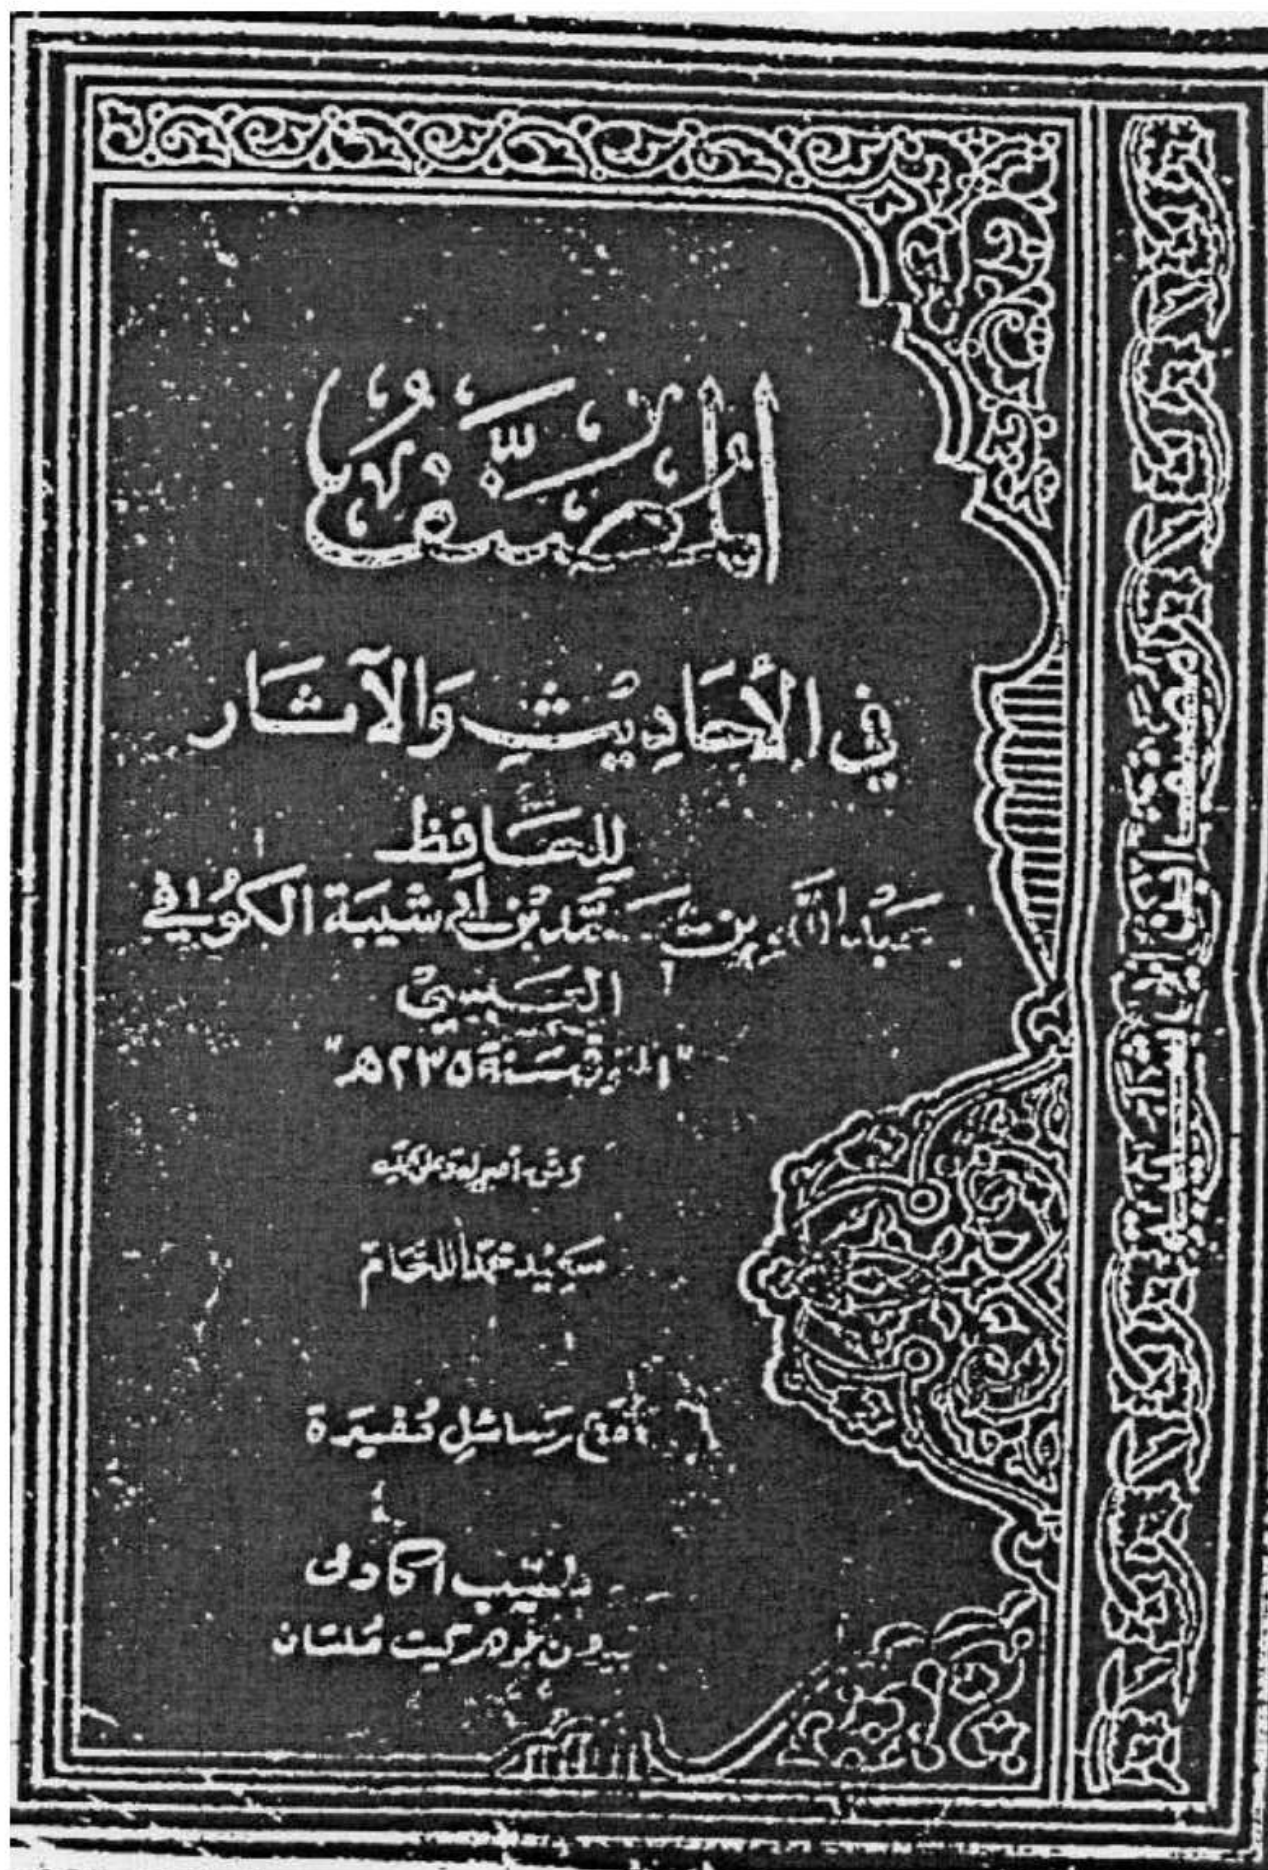 المُصَنَّف
في الأحَاديْثِ وَالآثَار
لِلحَافِظ
عَبْد الله بِن مُحَمَّد بْن أَبِي شَيبَة الكُوفي
العَبسِيّ
"المتوفى سَنة ٢٣٥هـ"
سَعِيد محمّد اللحَّام
مع رسَائل مُفيدَة
طيّب اكادمى
بيرون بوهر گیٹ مُلتان
مصنف ابن ابى شيبه